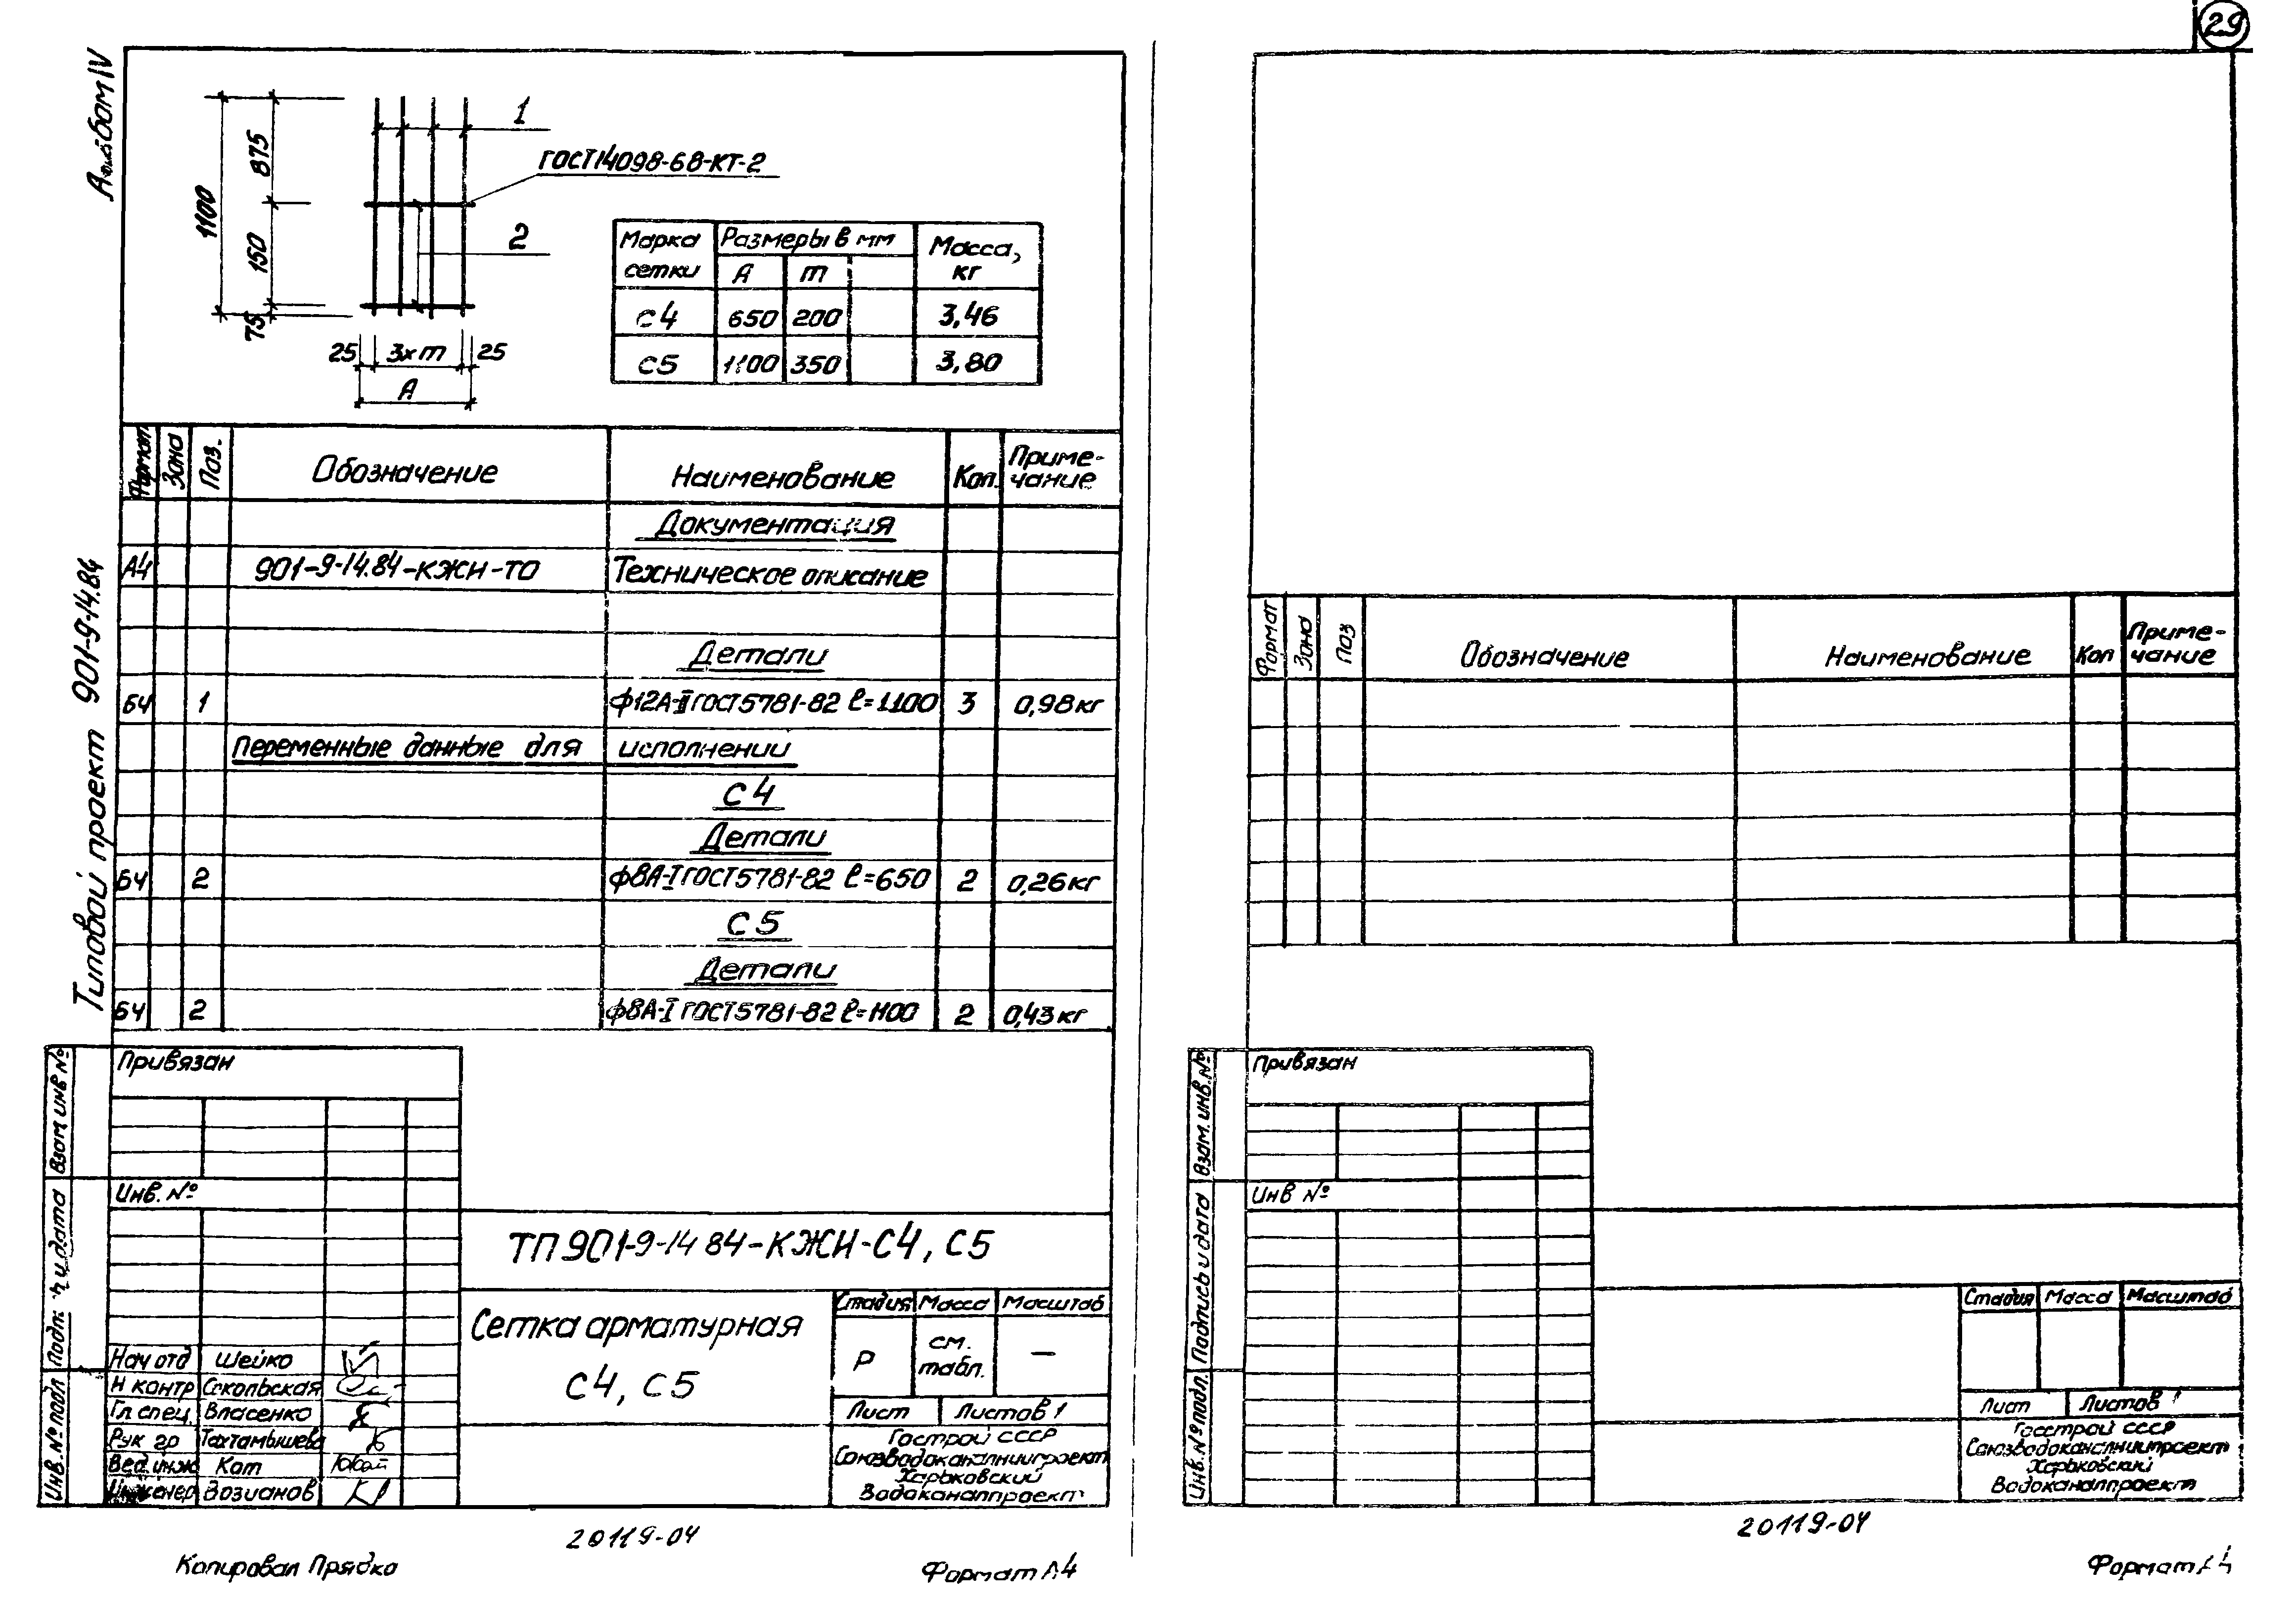 29
Альбом IV
Типовой проект 901-9-14.84
1
ГОСТ14098-68-КТ-2
2
1100
875
150
75
25 3хm 25
А
Марка сетки
Размеры в мм
Масса, кг
А m
С4 650 200 3,46
С5 1100 350 3,80
Формат Зона Поз. Обозначение Наименование Кол. Приме-
чание
Документация
А4 901-9-14.84-КЖИ-ТО Техническое описание
Детали
БЧ 1 ф12А-II ГОСТ5781-82 ℓ=1100 3 0,98кг
Переменные данные для исполнении
С4
Детали
БЧ 2 ф8А-I ГОСТ5781-82 ℓ=650 2 0,26кг
С5
Детали
БЧ 2 ф8А-I ГОСТ5781-82 ℓ=1100 2 0,43кг
Привязан
Инв. №
Взам инв №
и дата
Инв. № подл
ТП901-9-14 84-КЖИ-С4, С5
Сетка арматурная
С4, С5
Стадия Масса Масштаб
Р см. табл. –
Лист Листов 1
Госстрой СССР
Союзводоканалниипроект
Харьковский
Водоканалпроект
Нач отд Шейко
Н контр Сокольская
Гл спец. Власенко
Рук гр Тахтамышева
Вед. инж Кат
Инженер Возианов
20119-04
Копировал Прядко
Формат А4
Формат Зона Поз Обозначение Наименование Кол Приме-
чание
Привязан
Инв №
Взам. инв. №
Подпись и дата
Инв. № подл.
Стадия Масса Масштаб
Лист Листов 1
Госстрой СССР
Союзводоканалниипроект
Харьковский
Водоканалпроект
20119-04
Формат А4